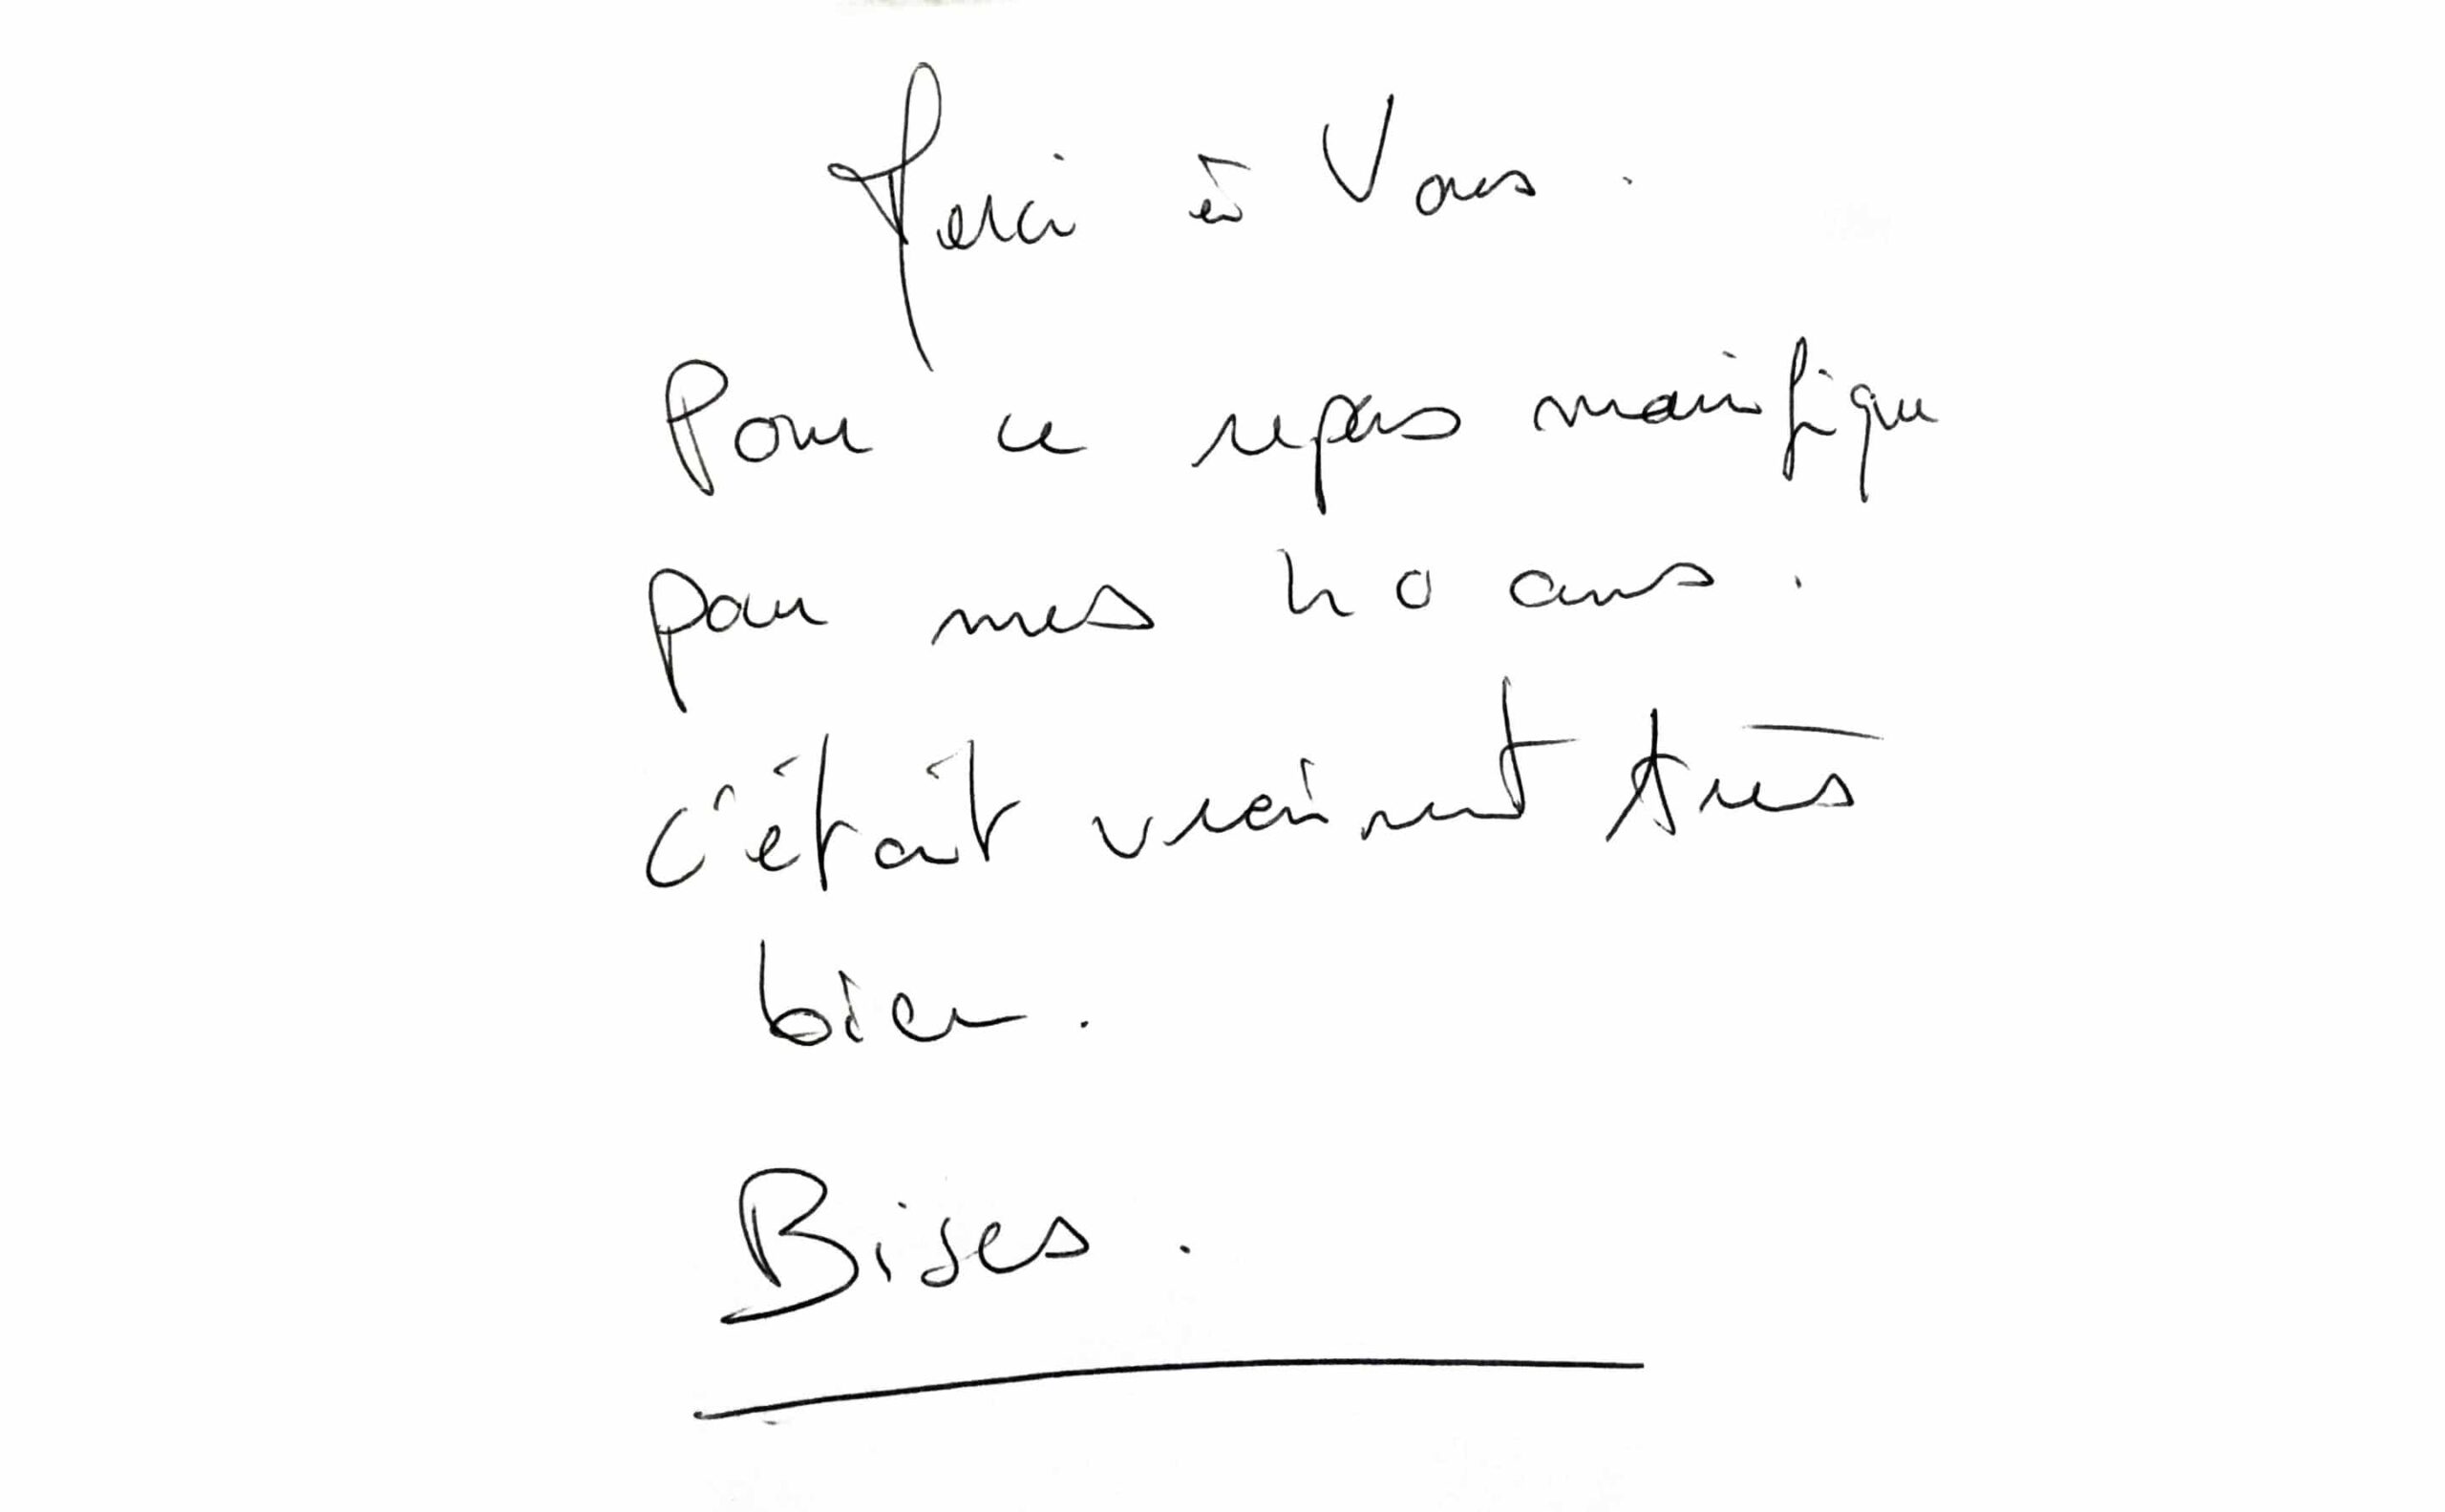 Merci à Vous.
Pour ce repas manifique
pour mes 40 ans.
c'était vraiment très
bien.
Bises.